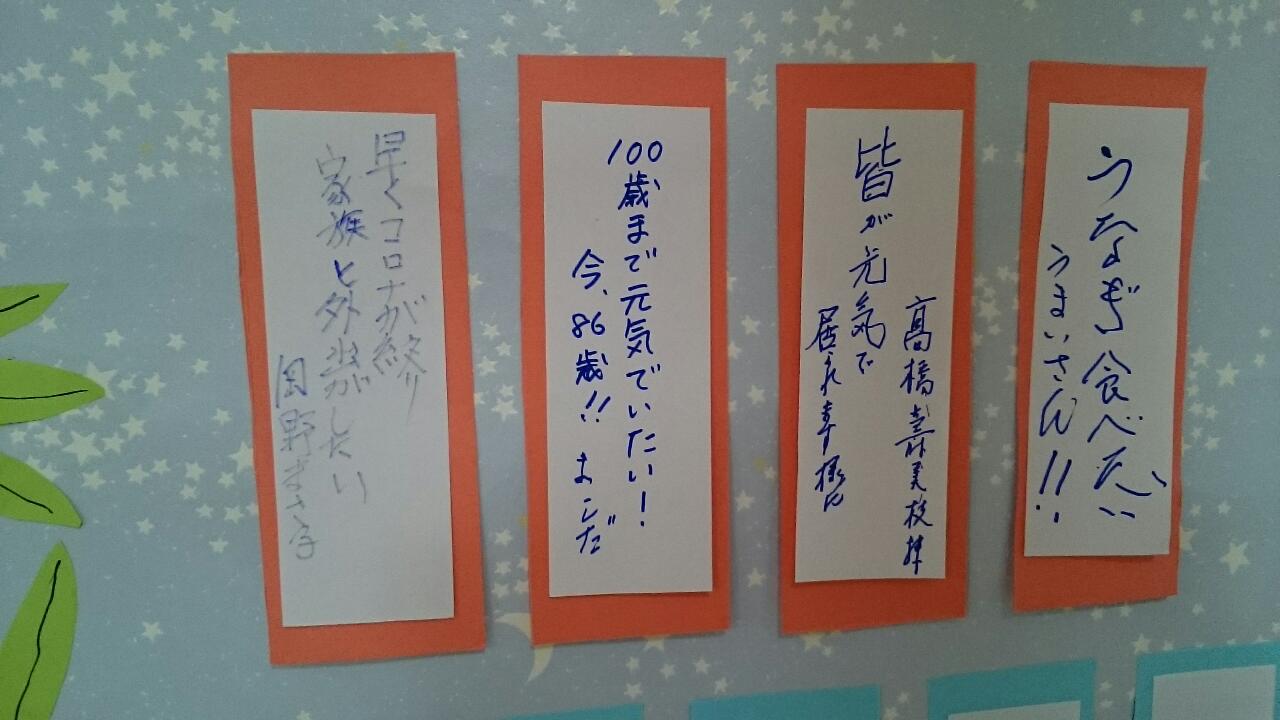 うなぎ食べたい
うまいさん!!
髙橋
皆が元気で
居られます様に
100歳まで元気でいたい!
今、86歳!!
早くコロナが終り
家族と外出がしたい
岡野まさ子